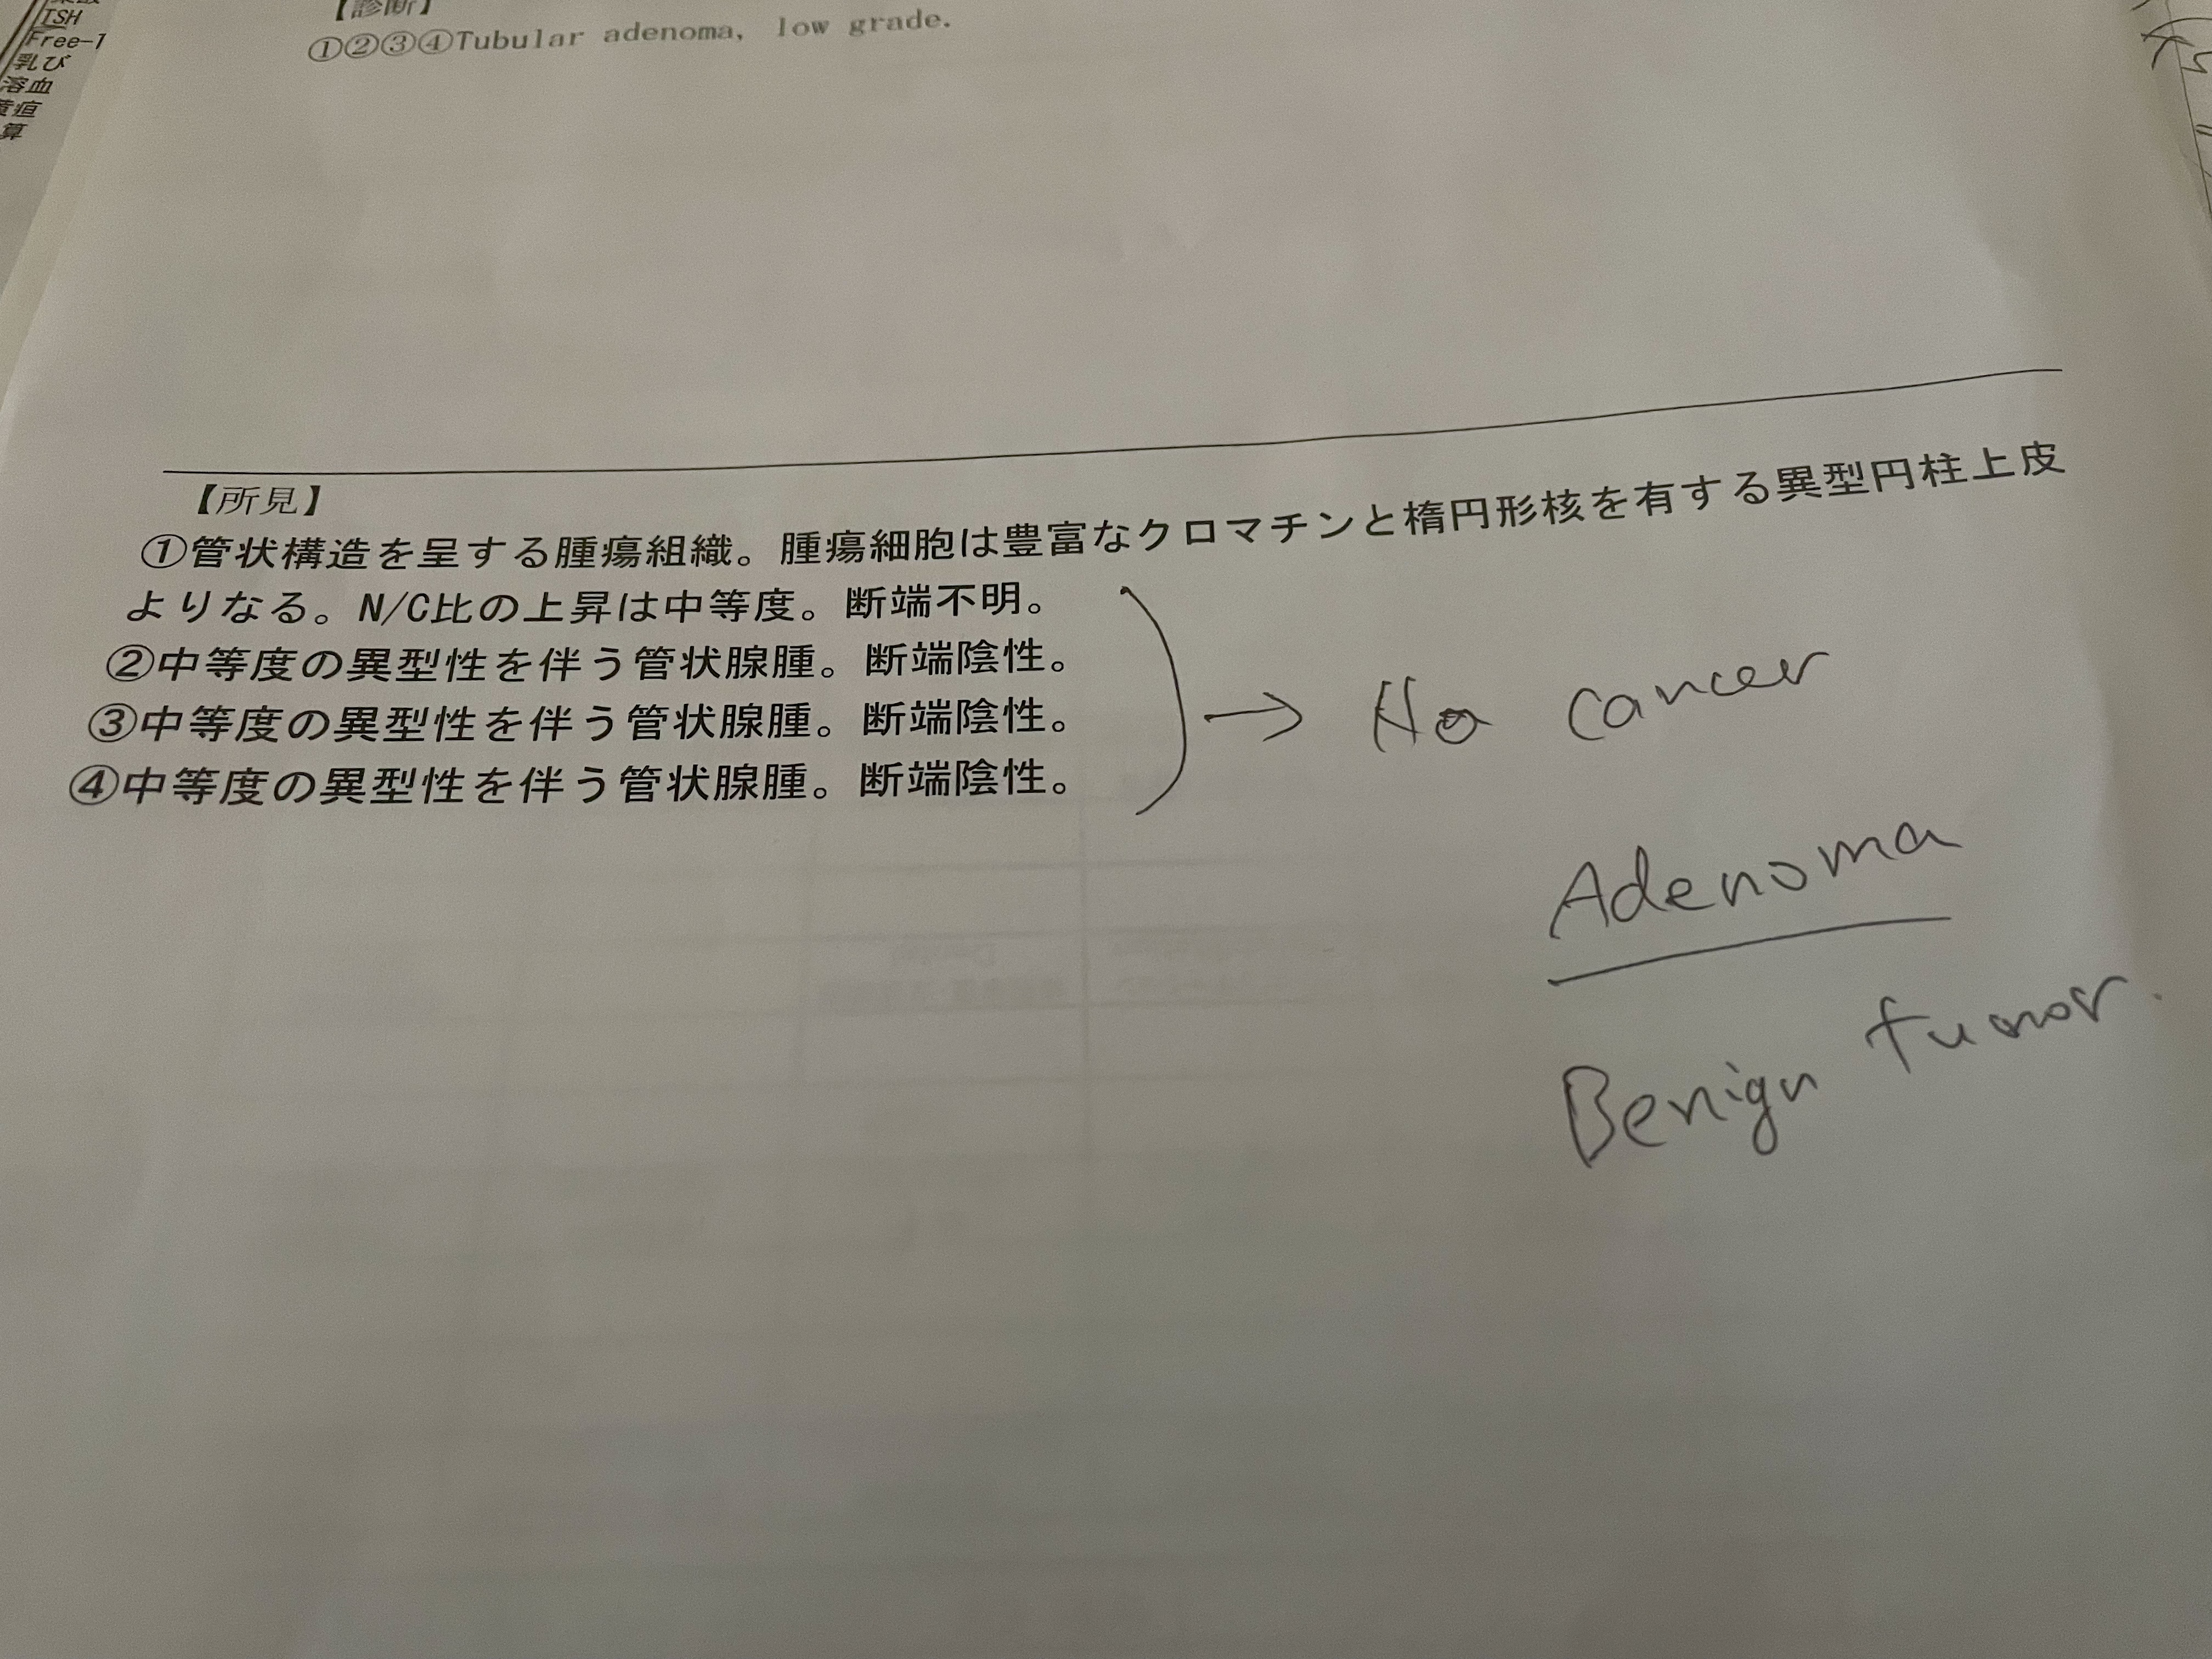 TSH
Free-T
乳び
溶血
黄疸
算
【診断】
①②③④Tubular adenoma, low grade.
【所見】
①管状構造を呈する腫瘍組織。腫瘍細胞は豊富なクロマチンと楕円形核を有する異型円柱上皮
よりなる。N/C比の上昇は中等度。断端不明。
②中等度の異型性を伴う管状腺腫。断端陰性。
③中等度の異型性を伴う管状腺腫。断端陰性。
④中等度の異型性を伴う管状腺腫。断端陰性。
→ No cancer
Adenoma
Benign tumor.